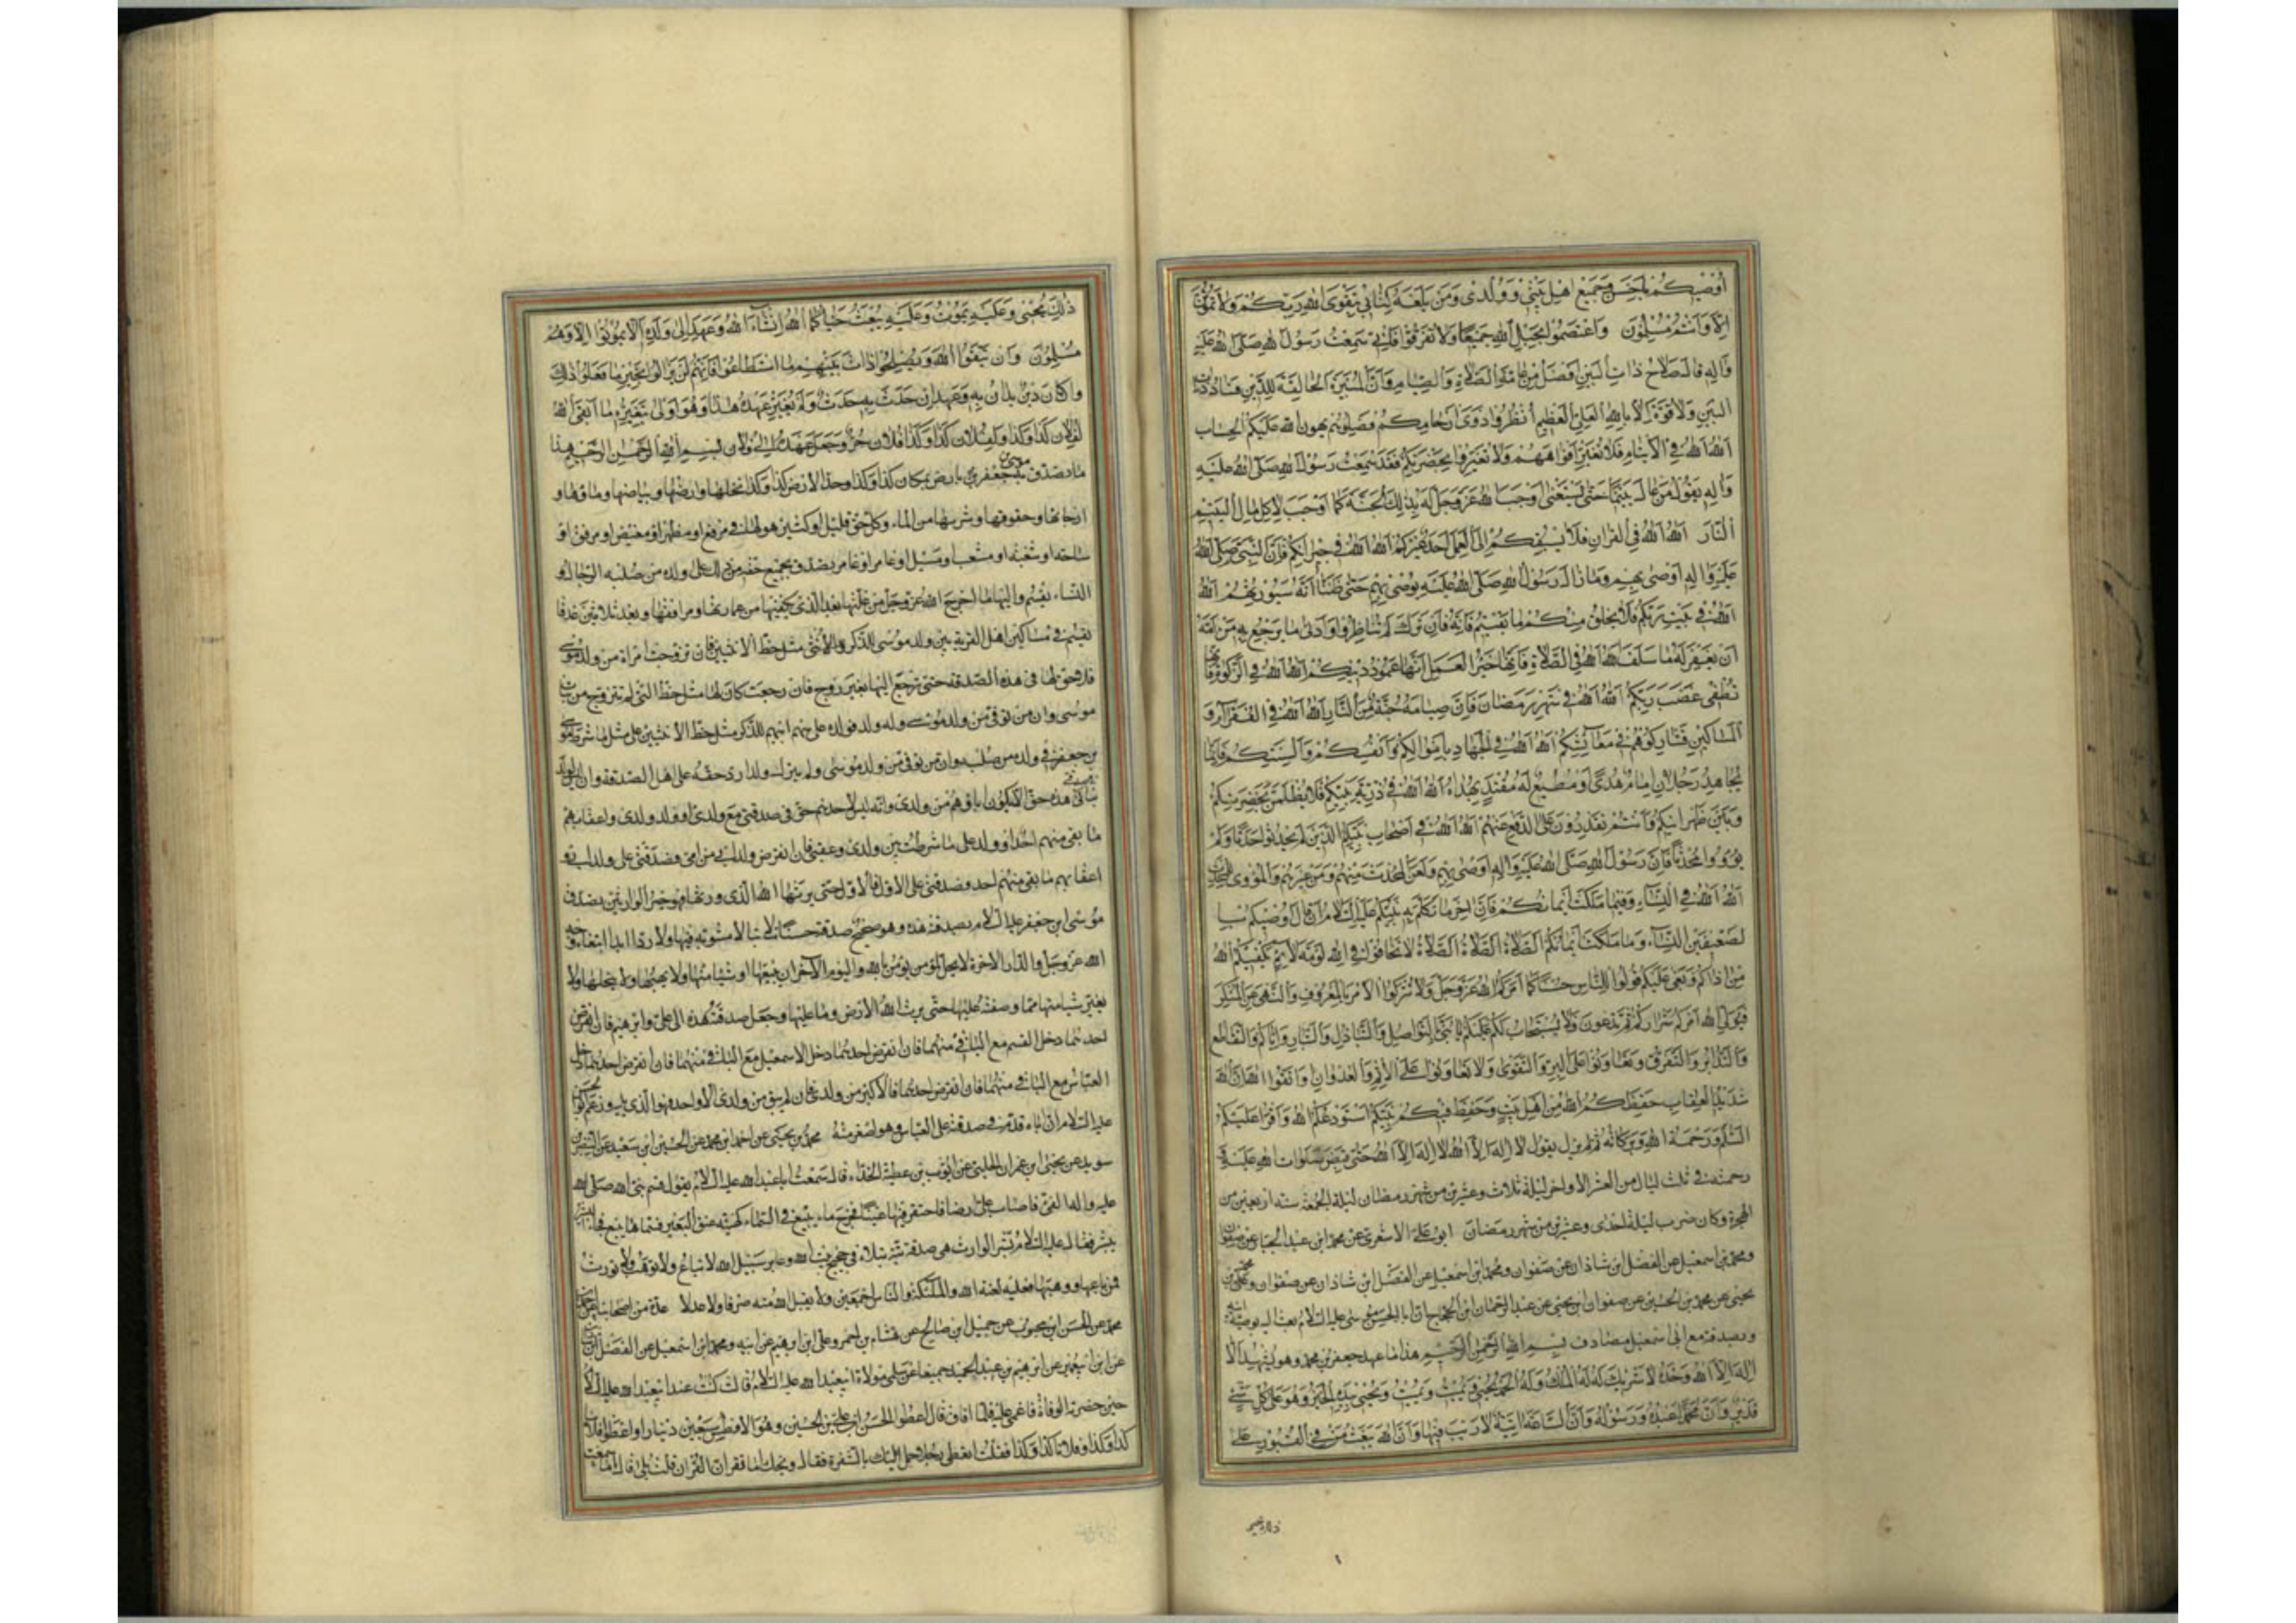 أُوصِيكُمْ يَا حَسَنُ وَجَمِيعَ أَهْلِ بَيْتِي وَوُلْدِي وَمَنْ بَلَغَهُ كِتَابِي بِتَقْوَى اللهِ رَبِّكُمْ وَلَا تَمُوتُنَّ
إِلَّا وَأَنْتُمْ مُسْلِمُونَ وَاعْتَصِمُوا بِحَبْلِ اللهِ جَمِيعًا وَلَا تَفَرَّقُوا فَإِنِّي سَمِعْتُ رَسُولَ اللهِ صَلَّى اللهُ عَلَيْهِ
وَآلِهِ قَالَ صَلَاحُ ذَاتِ الْبَيْنِ أَفْضَلُ مِنْ عَامَّةِ الصَّلَاةِ وَالصِّيَامِ وَأَنَّ الْمُبِيرَةَ الْحَالِقَةَ لِلدِّينِ فَسَادُ ذَاتِ
الْبَيْنِ وَلَا قُوَّةَ إِلَّا بِاللهِ الْعَلِيِّ الْعَظِيمِ انْظُرُوا ذَوِي أَرْحَامِكُمْ فَصِلُوهُمْ يُهَوِّنِ اللهُ عَلَيْكُمُ الْحِسَابَ
اللهَ اللهَ فِي الْأَيْتَامِ فَلَا تُغِبُّوا أَفْوَاهَهُمْ وَلَا يَضِيعُوا بِحَضْرَتِكُمْ فَقَدْ سَمِعْتُ رَسُولَ اللهِ صَلَّى اللهُ عَلَيْهِ
وَآلِهِ يَقُولُ مَنْ عَالَ يَتِيمًا حَتَّى يَسْتَغْنِيَ أَوْجَبَ اللهُ عَزَّ وَجَلَّ لَهُ بِذَلِكَ الْجَنَّةَ كَمَا أَوْجَبَ لِآكِلِ مَالِ الْيَتِيمِ
النَّارَ اللهَ اللهَ فِي الْقُرْآنِ فَلَا يَسْبِقُكُمْ إِلَى الْعَمَلِ أَحَدٌ غَيْرُكُمْ اللهَ اللهَ فِي جِيرَانِكُمْ فَإِنَّ النَّبِيَّ صَلَّى اللهُ
عَلَيْهِ وَآلِهِ أَوْصَى بِهِمْ وَمَا زَالَ رَسُولُ اللهِ صَلَّى اللهُ عَلَيْهِ يُوصِي بِهِمْ حَتَّى ظَنَنَّا أَنَّهُ سَيُوَرِّثُهُمْ اللهَ
اللهَ فِي بَيْتِ رَبِّكُمْ فَلَا يَخْلُو مِنْكُمْ مَا بَقِيتُمْ فَإِنَّهُ إِنْ تُرِكَ لَمْ تُنَاظَرُوا وَأَدْنَى مَا يَرْجِعُ بِهِ مَنْ أَمَّهُ
أَنْ يُغْفَرَ لَهُ مَا سَلَفَ اللهَ اللهَ فِي الصَّلَاةِ فَإِنَّهَا خَيْرُ الْعَمَلِ إِنَّهَا عَمُودُ دِينِكُمْ اللهَ اللهَ فِي الزَّكَوةِ فَإِنَّهَا
تُطْفِي غَضَبَ رَبِّكُمْ اللهَ اللهَ فِي شَهْرِ رَمَضَانَ فَإِنَّ صِيَامَهُ جُنَّةٌ مِنَ النَّارِ اللهَ اللهَ فِي الْفُقَرَاءِ وَ
الْمَسَاكِينِ فَشَارِكُوهُمْ فِي مَعَائِشِكُمْ اللهَ اللهَ فِي الْجِهَادِ بِأَمْوَالِكُمْ وَأَنْفُسِكُمْ وَأَلْسِنَتِكُمْ فَإِنَّمَا
يُجَاهِدُ رَجُلَانِ إِمَامُ هُدًى أَوْ مُطِيعٌ لَهُ مُقْتَدٍ بِهُدَاهُ اللهَ اللهَ فِي ذُرِّيَّةِ نَبِيِّكُمْ فَلَا يُظْلَمَنَّ بِحَضْرَتِكُمْ
وَبَيْنَ ظَهْرَانَيْكُمْ وَأَنْتُمْ تَقْدِرُونَ عَلَى الدَّفْعِ عَنْهُمْ اللهَ اللهَ فِي أَصْحَابِ نَبِيِّكُمُ الَّذِينَ لَمْ يُحْدِثُوا حَدَثًا وَلَمْ
يُؤْوُوا مُحْدِثًا فَإِنَّ رَسُولَ اللهِ صَلَّى اللهُ عَلَيْهِ وَآلِهِ أَوْصَى بِهِمْ وَلَعَنَ الْمُحْدِثَ مِنْهُمْ وَمِنْ غَيْرِهِمْ وَالْمُؤْوِي لِلْمُحْدِثِ
اللهَ اللهَ فِي النِّسَاءِ وَفِيمَا مَلَكَتْ أَيْمَانُكُمْ فَإِنَّ آخِرَ مَا تَكَلَّمَ بِهِ نَبِيُّكُمْ عَلَيْهِ السَّلَامُ أَنْ قَالَ أُوصِيكُمْ
بِالضَّعِيفَيْنِ النِّسَاءِ وَمَا مَلَكَتْ أَيْمَانُكُمْ الصَّلَاةَ الصَّلَاةَ الصَّلَاةَ لَا تَخَافُوا فِي اللهِ لَوْمَةَ لَائِمٍ يَكْفِيكُمُ اللهُ
مَنْ آذَاكُمْ وَبَغَى عَلَيْكُمْ قُولُوا لِلنَّاسِ حُسْنًا كَمَا أَمَرَكُمُ اللهُ عَزَّ وَجَلَّ وَلَا تَتْرُكُوا الْأَمْرَ بِالْمَعْرُوفِ وَالنَّهْيَ عَنِ الْمُنْكَرِ
فَيُوَلِّيَ اللهُ أَمْرَكُمْ شِرَارَكُمْ ثُمَّ تَدْعُونَ فَلَا يُسْتَجَابُ لَكُمْ عَلَيْكُمْ يَا بَنِيَّ بِالتَّوَاصُلِ وَالتَّبَاذُلِ وَالتَّبَارِّ وَإِيَّاكُمْ وَالتَّقَاطُعَ
وَالتَّدَابُرَ وَالتَّفَرُّقَ وَتَعَاوَنُوا عَلَى الْبِرِّ وَالتَّقْوَى وَلَا تَعَاوَنُوا عَلَى الْإِثْمِ وَالْعُدْوَانِ وَاتَّقُوا اللهَ إِنَّ اللهَ
شَدِيدُ الْعِقَابِ حَفِظَكُمُ اللهُ مِنْ أَهْلِ بَيْتٍ وَحَفِظَ فِيكُمْ نَبِيَّكُمْ أَسْتَوْدِعُكُمُ اللهَ وَأَقْرَأُ عَلَيْكُمُ
السَّلَمَ وَرَحْمَةَ اللهِ وَبَرَكَاتِهِ ثُمَّ لَمْ يَزَلْ يَقُولُ لَا إِلَهَ إِلَّا اللهُ لَا إِلَهَ إِلَّا اللهُ حَتَّى قُبِضَ صَلَوَاتُ اللهِ عَلَيْهِ وَ
رحمته في ثلث ليال من العشر الأواخر ليلة ثلاث وعشرين من شهر رمضان ليلة الجمعة سنة أربعين من
الهجرة وكان ضرب ليلة إحدى وعشرين من شهر رمضان أبو علي الأشعري عن محمد ابن عبد الجبار عن صفوان
ومحمد بن اسمعيل عن الفضل ابن شاذان عن صفوان ومحمد ابن اسمعيل عن الفضل ابن شاذان عن صفوان
يحيى عن محمد بن الحسين عن صفوان ابن يحيى عن عبد الرحمان ابن الحجاج أن أبا الحسن موسى عليه السلام بعث إليه بوصية
وبصدقته مع أبي اسمعيل مصادف بسم الله الرحمن الرحيم هذا ما عهد جعفر بن محمد وهو يشهد ألا
إله إلا الله وحده لا شريك له له الملك وله الحمد يحيي ويميت ويميت ويحيي بيده الخير وهو على كل شيء
قدير وأن محمدا عبده ورسوله وأن الساعة آتية لا ريب فيها وأن الله يبعث من في القبور على
ذلك يحيى
ذلك يحيى وعليه يموت وعليه يبعث حيا كما الله إن شاء الله وعهد إلى ولده ألا يموتوا إلا وهم
مسلمون وأن يتقوا الله ويصلحوا ذات بينهم ما استطاعوا فإنهم لن يزالوا بخير ما فعلوا ذلك
وإن كان دين يدان به وعهد إن حدث به حدث ولم يغير عهده هذا وهو أولى بتغييره ما أبقاه الله
لفلان كذا وكذا ولفلان كذا وكذا فلان حر وجعل عهده إلى فلان بسم الله الرحمن الرحيم هذا
ما تصدق موسى بن جعفر بأرض بمكان كذا وكذا وحد الأرض كذا وكذا نخلها وأرضها وبياضها وماؤها و
أرجائها وحقوقها وشربها من الماء وكل حق قليل أو كثير هو لها في مرفع أو مظهر أو مغيض أو مرفق أو
ساحة أو شعبة أو مشعب أو مسيل أو عامر أو غامر تصدق بجميع حقه من ذلك على ولده من صلبه الرجال و
النساء يقسم واليها ما أخرج الله عز وجل من غلتها بعد الذي يكفيها من عمارتها ومرافقها وبعد ثلاثين عذقا
يقسم في مساكين أهل القرية بين ولد موسى للذكر مثل حظ الأنثيين فإن تزوجت امرأة من ولد موسى
فلا حق لها في هذه الصدقة حتى ترجع إليها بغير زوج فإن رجعت كان لها مثل حظ التي لم تتزوج من بنات
موسى وإن من توفي من ولد موسى وله ولد فولده على سهم أبيهم للذكر مثل حظ الأنثيين على مثل ما شرط موسى
بن جعفر في ولده من صلبه وإن من توفي من ولد موسى ولم يترك ولدا رد حقه على أهل الصدقة وإن
بناتي في صدقتي هذه حق إلا أن يكون آباؤهم من ولدي وإنه ليس لأحد منهم حق في صدقتي مع ولدي أو ولد ولدي وأعقابهم
ما بقي منهم أحد ولد على ما شرطت بين ولدي وعقبي فإن انقرض ولد أبي من أمي وصدقتي على ولد أبي و
أعقابهم ما بقي منهم أحد وصدقتي على الأول فالأول حتى يرثها الله الذي ورثها وهو خير الوارثين تصدق
موسى ابن جعفر عليه السلام بصدقته هذه وهو صحيح صدقة حبيسا بتا بتلا لا مثنوية فيها ولا ردا أبدا ابتغاء وجه
الله عز وجل والدار الآخرة لا يحل لمؤمن يؤمن بالله واليوم الآخر أن يبيعها أو شيئا منها ولا يهبها ولا ينحلها ولا
يغير شيئا منها مما وصفته عليها حتى يرث الله الأرض وما عليها وجعل صدقته هذه إلى علي وإبرهيم فإن انقرض
أحدهما دخل القسم مع الباقي منهما فإن انقرض أحدهما دخل اسمعيل مع الباقي منهما فإن انقرض أحدهما دخل
العباس مع الباقي منهما فإن انقرض أحدهما فالأكبر من ولدي فإن لم يبق من ولدي إلا واحد فهو الذي يليه
عليه السلام أن أباه قدم في صدقته على العباس وهو أصغر منه محمد بن يحيى عن احمد ابن محمد عن الحسين ابن سعيد عن النضر بن
سويد عن يحيى ابن عمران الحلبي عن أيوب بن عطية الحذاء قال سمعت أبا عبد الله عليه السلام يقول قسم نبي الله صلى الله
عليه وآله الفيء فأصاب علي أرضا فاحتفر فيها عينا فخرج ماء ينبع في السماء كهيئة عنق البعير فسماها ينبع فجاء البشير
يبشر فقال عليه السلام بشر الوارث هي صدقة بتة بتلاء في حجيج بيت الله وعابر سبيل الله لا تباع ولا توهب ولا تورث
فمن باعها ووهبها فعليه لعنة الله والملئكة والناس أجمعين ولا يقبل الله منه صرفا ولا عدلا عدة من أصحابنا
محمد عن الحسن ابن محبوب عن جميل ابن صالح عن هشام بن أحمر وعلي ابن إبرهيم عن أبيه ومحمد ابن اسمعيل عن الفضل
عن ابن أبي عمير عن إبرهيم بن عبد الحميد جميعا عن سلمى مولاة أبي عبد الله عليه السلام قالت كنت عند أبي عبد الله عليه السلام
حين حضرته الوفاة فأغمي عليه فلما أفاق قال أعطوا الحسن ابن علي بن الحسين وهو الأفطس سبعين دينارا وأعطوا فلانا
كذا وكذا وفلانا كذا وكذا فقلت أتعطي رجلا حمل عليك بالشفرة فقال ويحك أما تقرأن القرآن قلت بلى قال أما سمعت